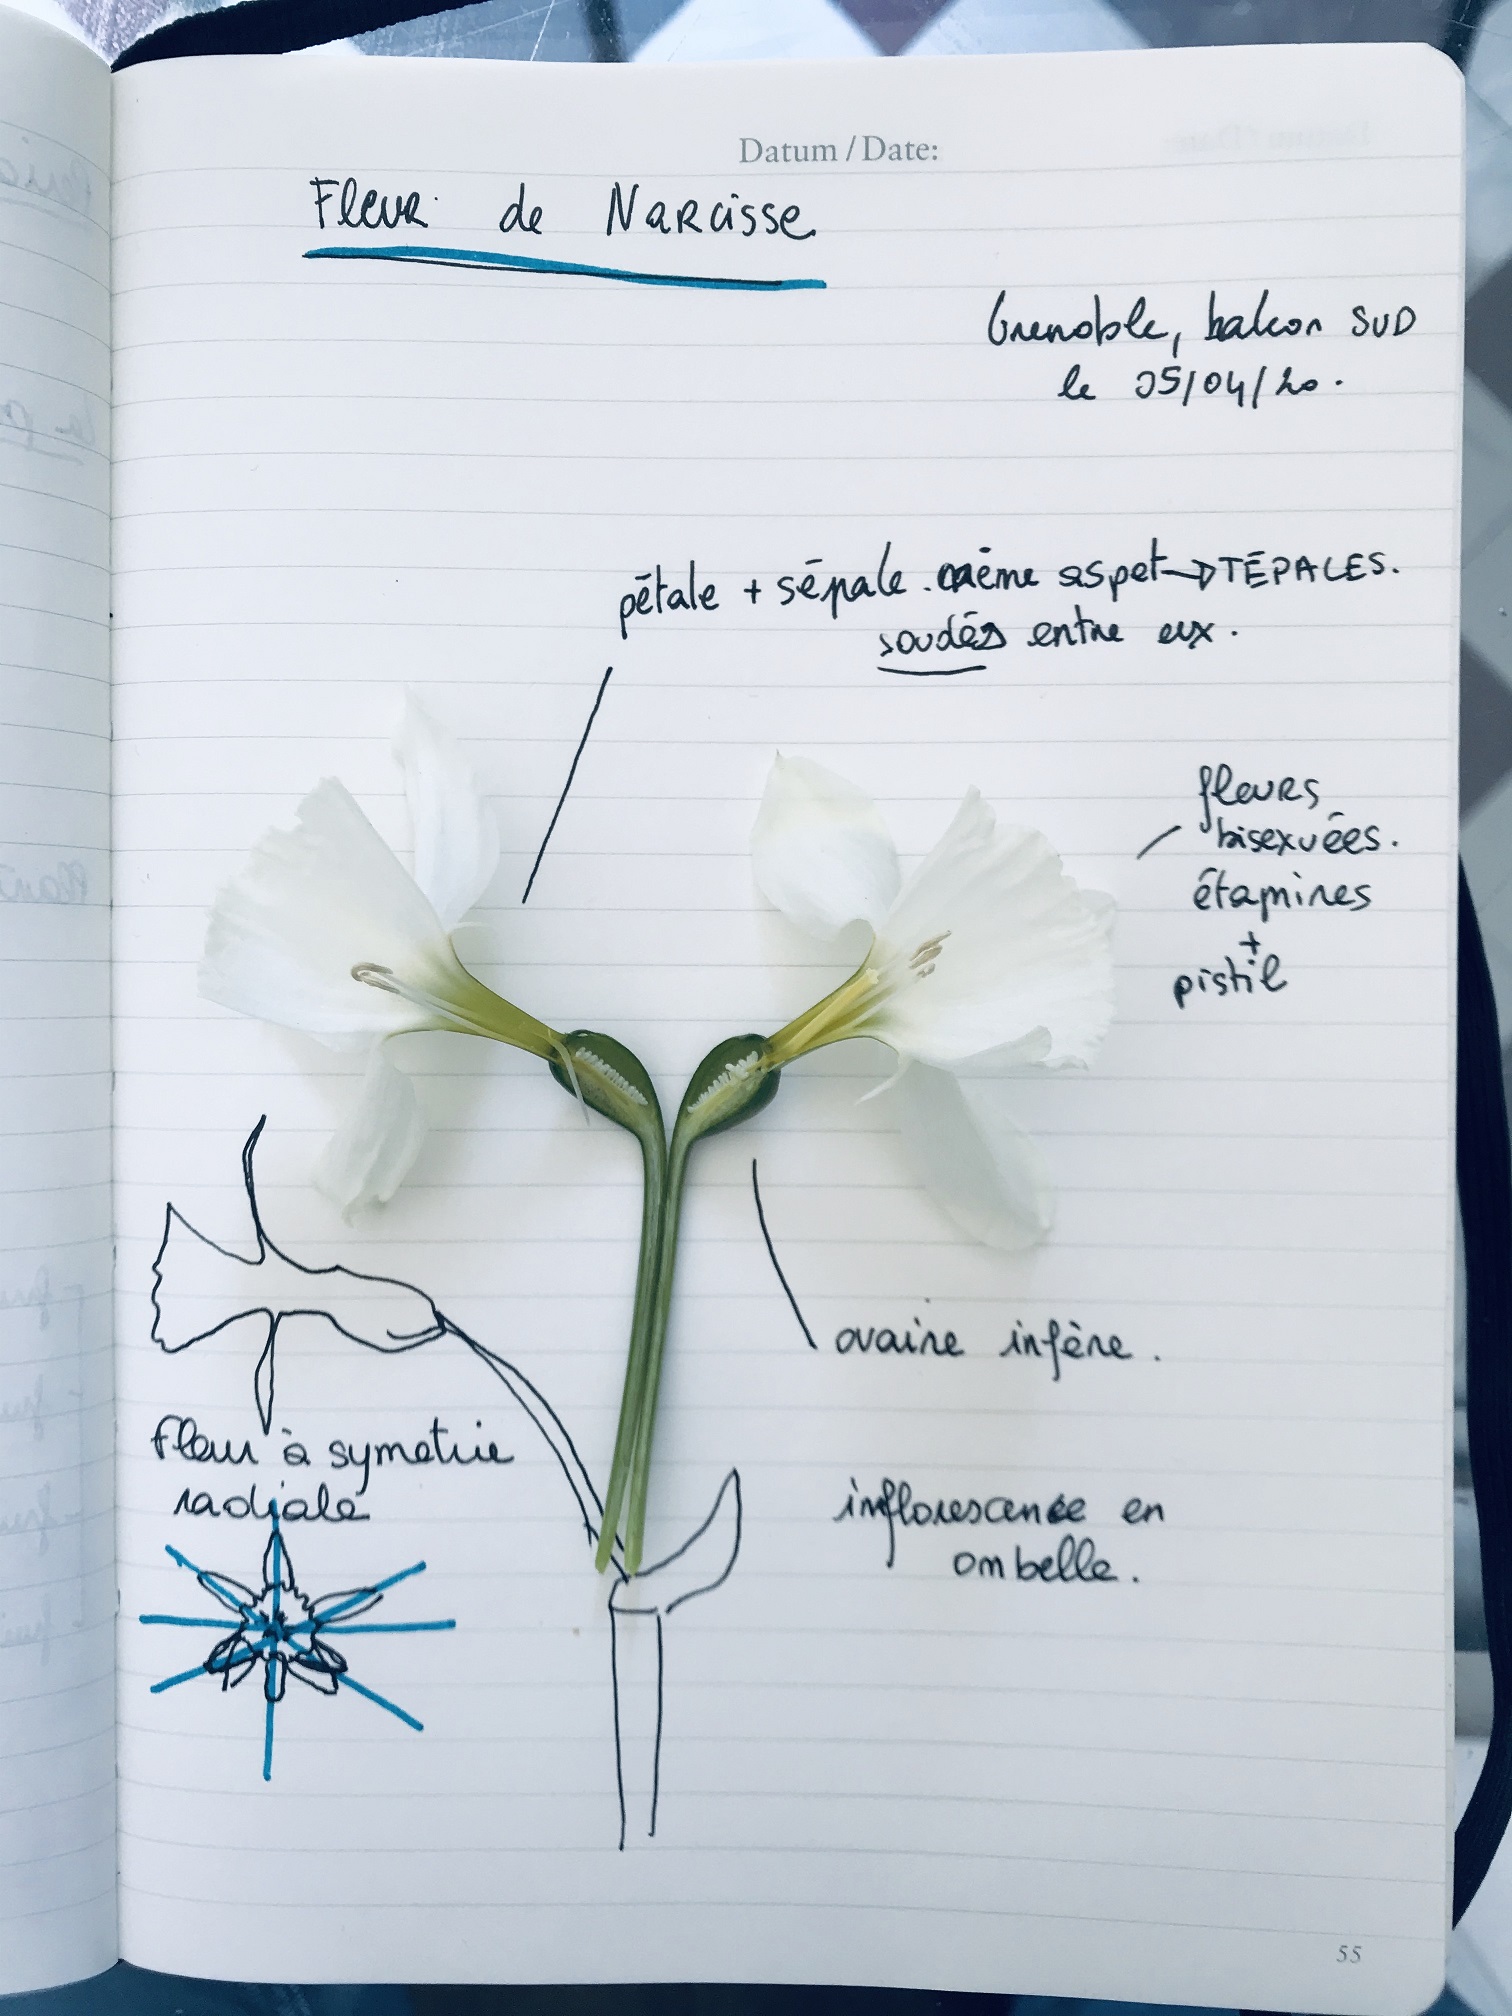 Datum / Date:
Fleur de Narcisse
Grenoble, balcon SUD
le 05/04/20.
pétale + sépale. même aspet → TÉPALES.
soudés entre eux.
fleurs
bisexuées.
étamines
+
pistil
ovaire infère.
Fleur à symetrie
radiale
inflorescence en
ombelle.
55